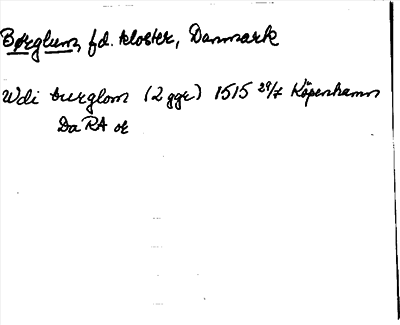 Børglum, fd. kloster, Danmark
Wdi burglom (2 ggr) 1515 29/7 Köpenhamn
Da RA or